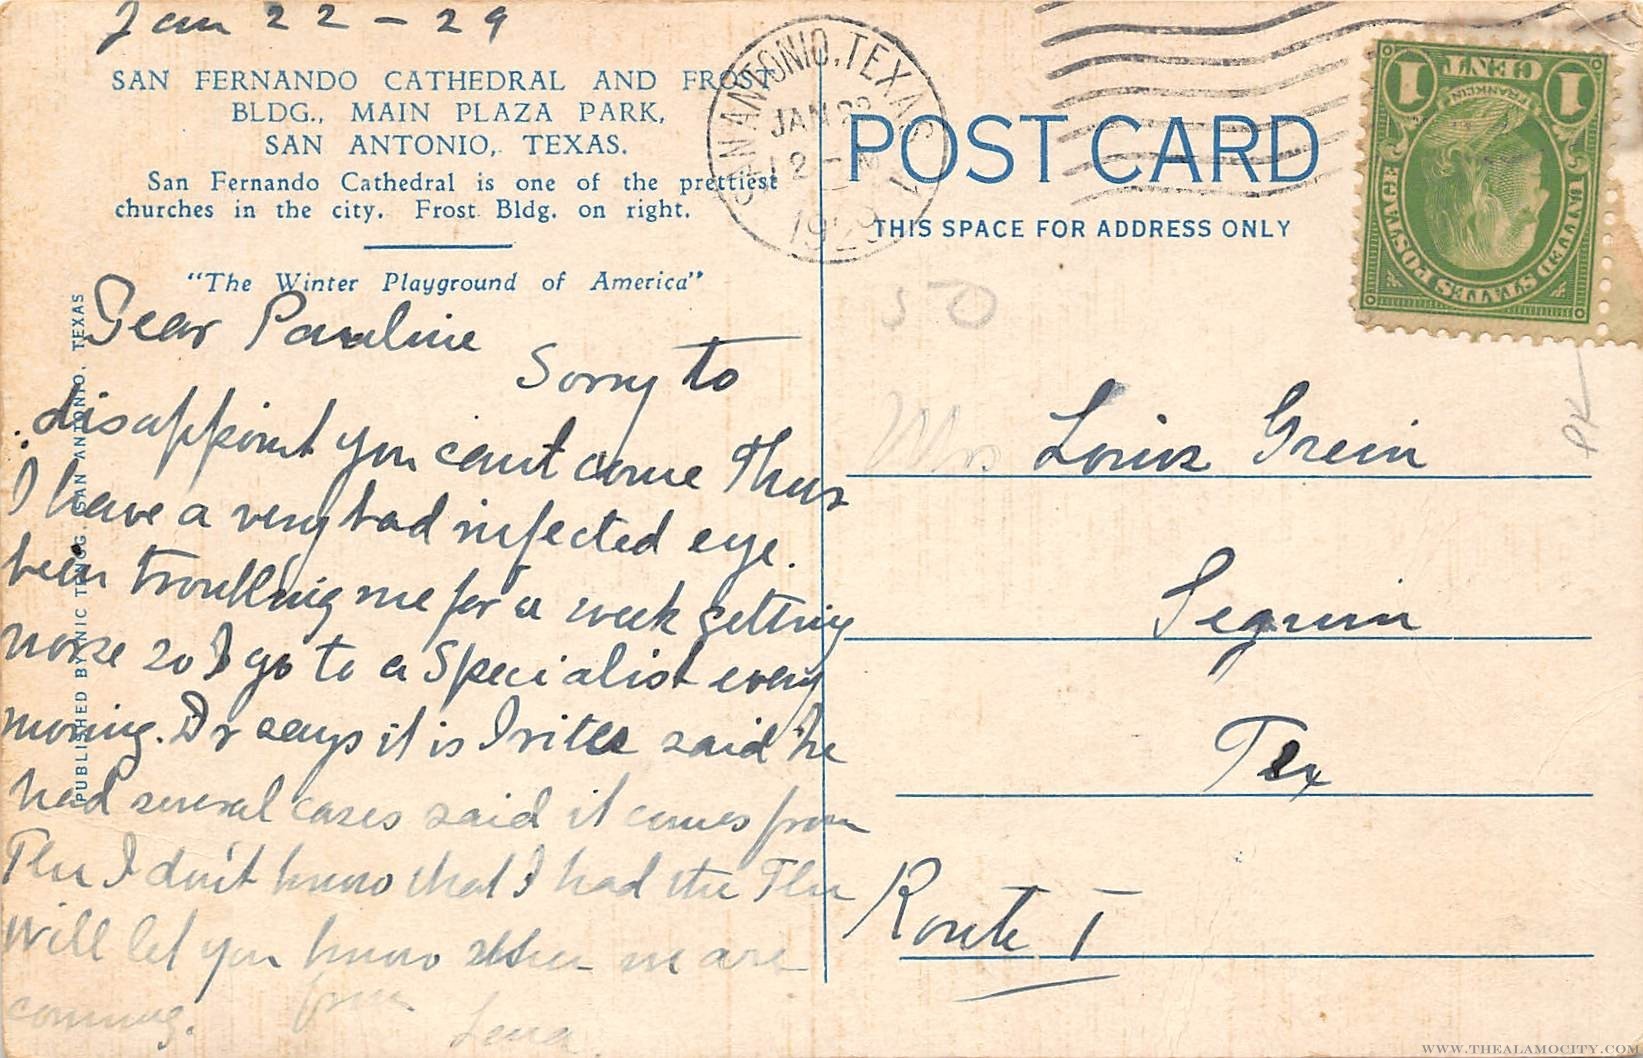 Jan 22 - 29
SAN FERNANDO CATHEDRAL AND FROST
BLDG., MAIN PLAZA PARK,
SAN ANTONIO, TEXAS.
San Fernando Cathedral is one of the prettiest
churches in the city. Frost Bldg. on right.
"The Winter Playground of America"
PUBLISHED BY NIC TENGG, SAN ANTONIO, TEXAS
Dear Pauline
Sorry to
disappoint you cant come Thurs
I have a very bad infected eye.
been troubling me for a week getting
worse so I go to a Specialist every
morning. Dr says it is Irites said he
had several cases said it comes from
Flu I don't know that I had the Flu
Will let you know when we are
coming. from
Lena
SAN ANTONIO, TEXAS
JAN 22
12 - M
1929
POST CARD
THIS SPACE FOR ADDRESS ONLY
1 CENT 1
FRANKLIN
UNITED STATES POSTAGE
50
PK
Mrs Louis Grein
Seguin
Tex
Route 1
WWW.THEALAMOCITY.COM